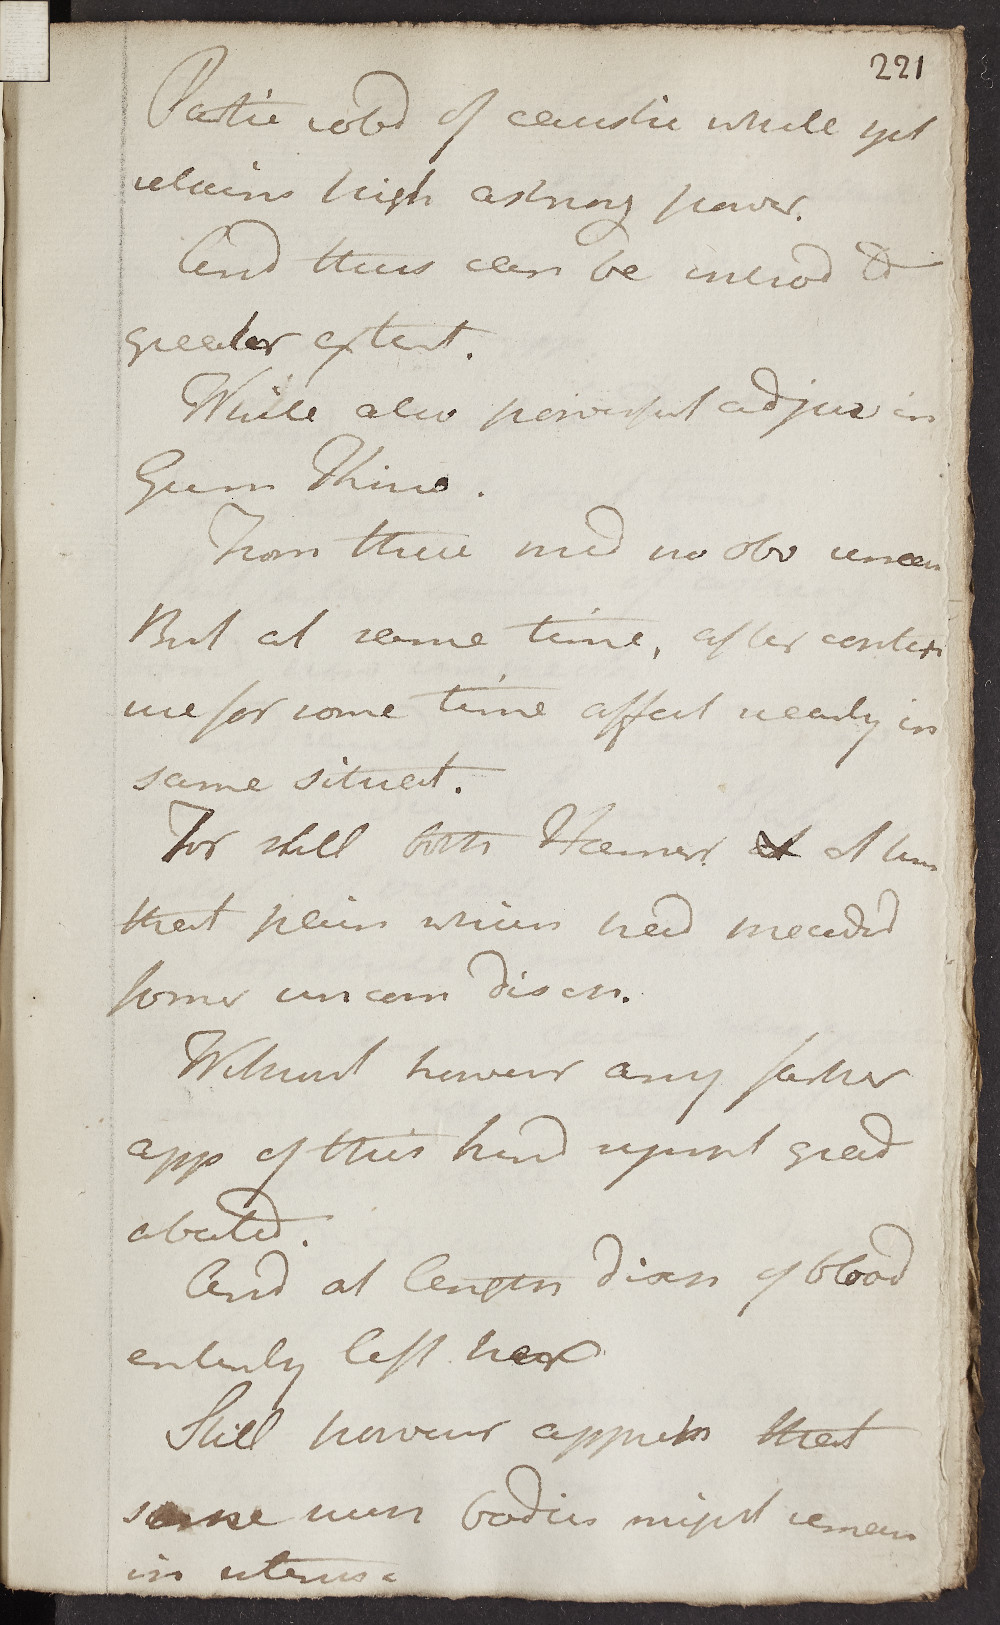 221
Partic robd of caustic while yet
retains high astring power.
And thus can be introd to
greater extent.
While also powerful adjuv in
Gum Kino.
From these med no obv
But at same time, after contin
use for some time affect nearly in
same situat.
For still both Haemorr. at
that pain which had
former uncom discn.
Without howevr any farther
app of this kind sympt grad
abated.
And at length discn of blood
entirely left her
Still howevr apprehn that
some such bodies might remain
in uterus.